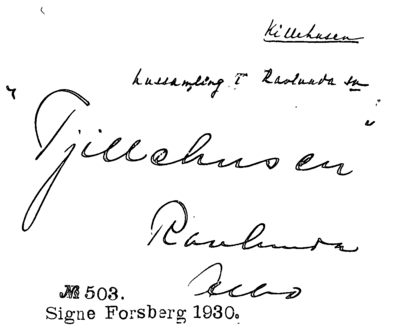 Killehusen
hussamling i Ravlunda sn
"Tjillehusen"
Ravlunda
Albo
№ 503.
Signe Forsberg 1930.